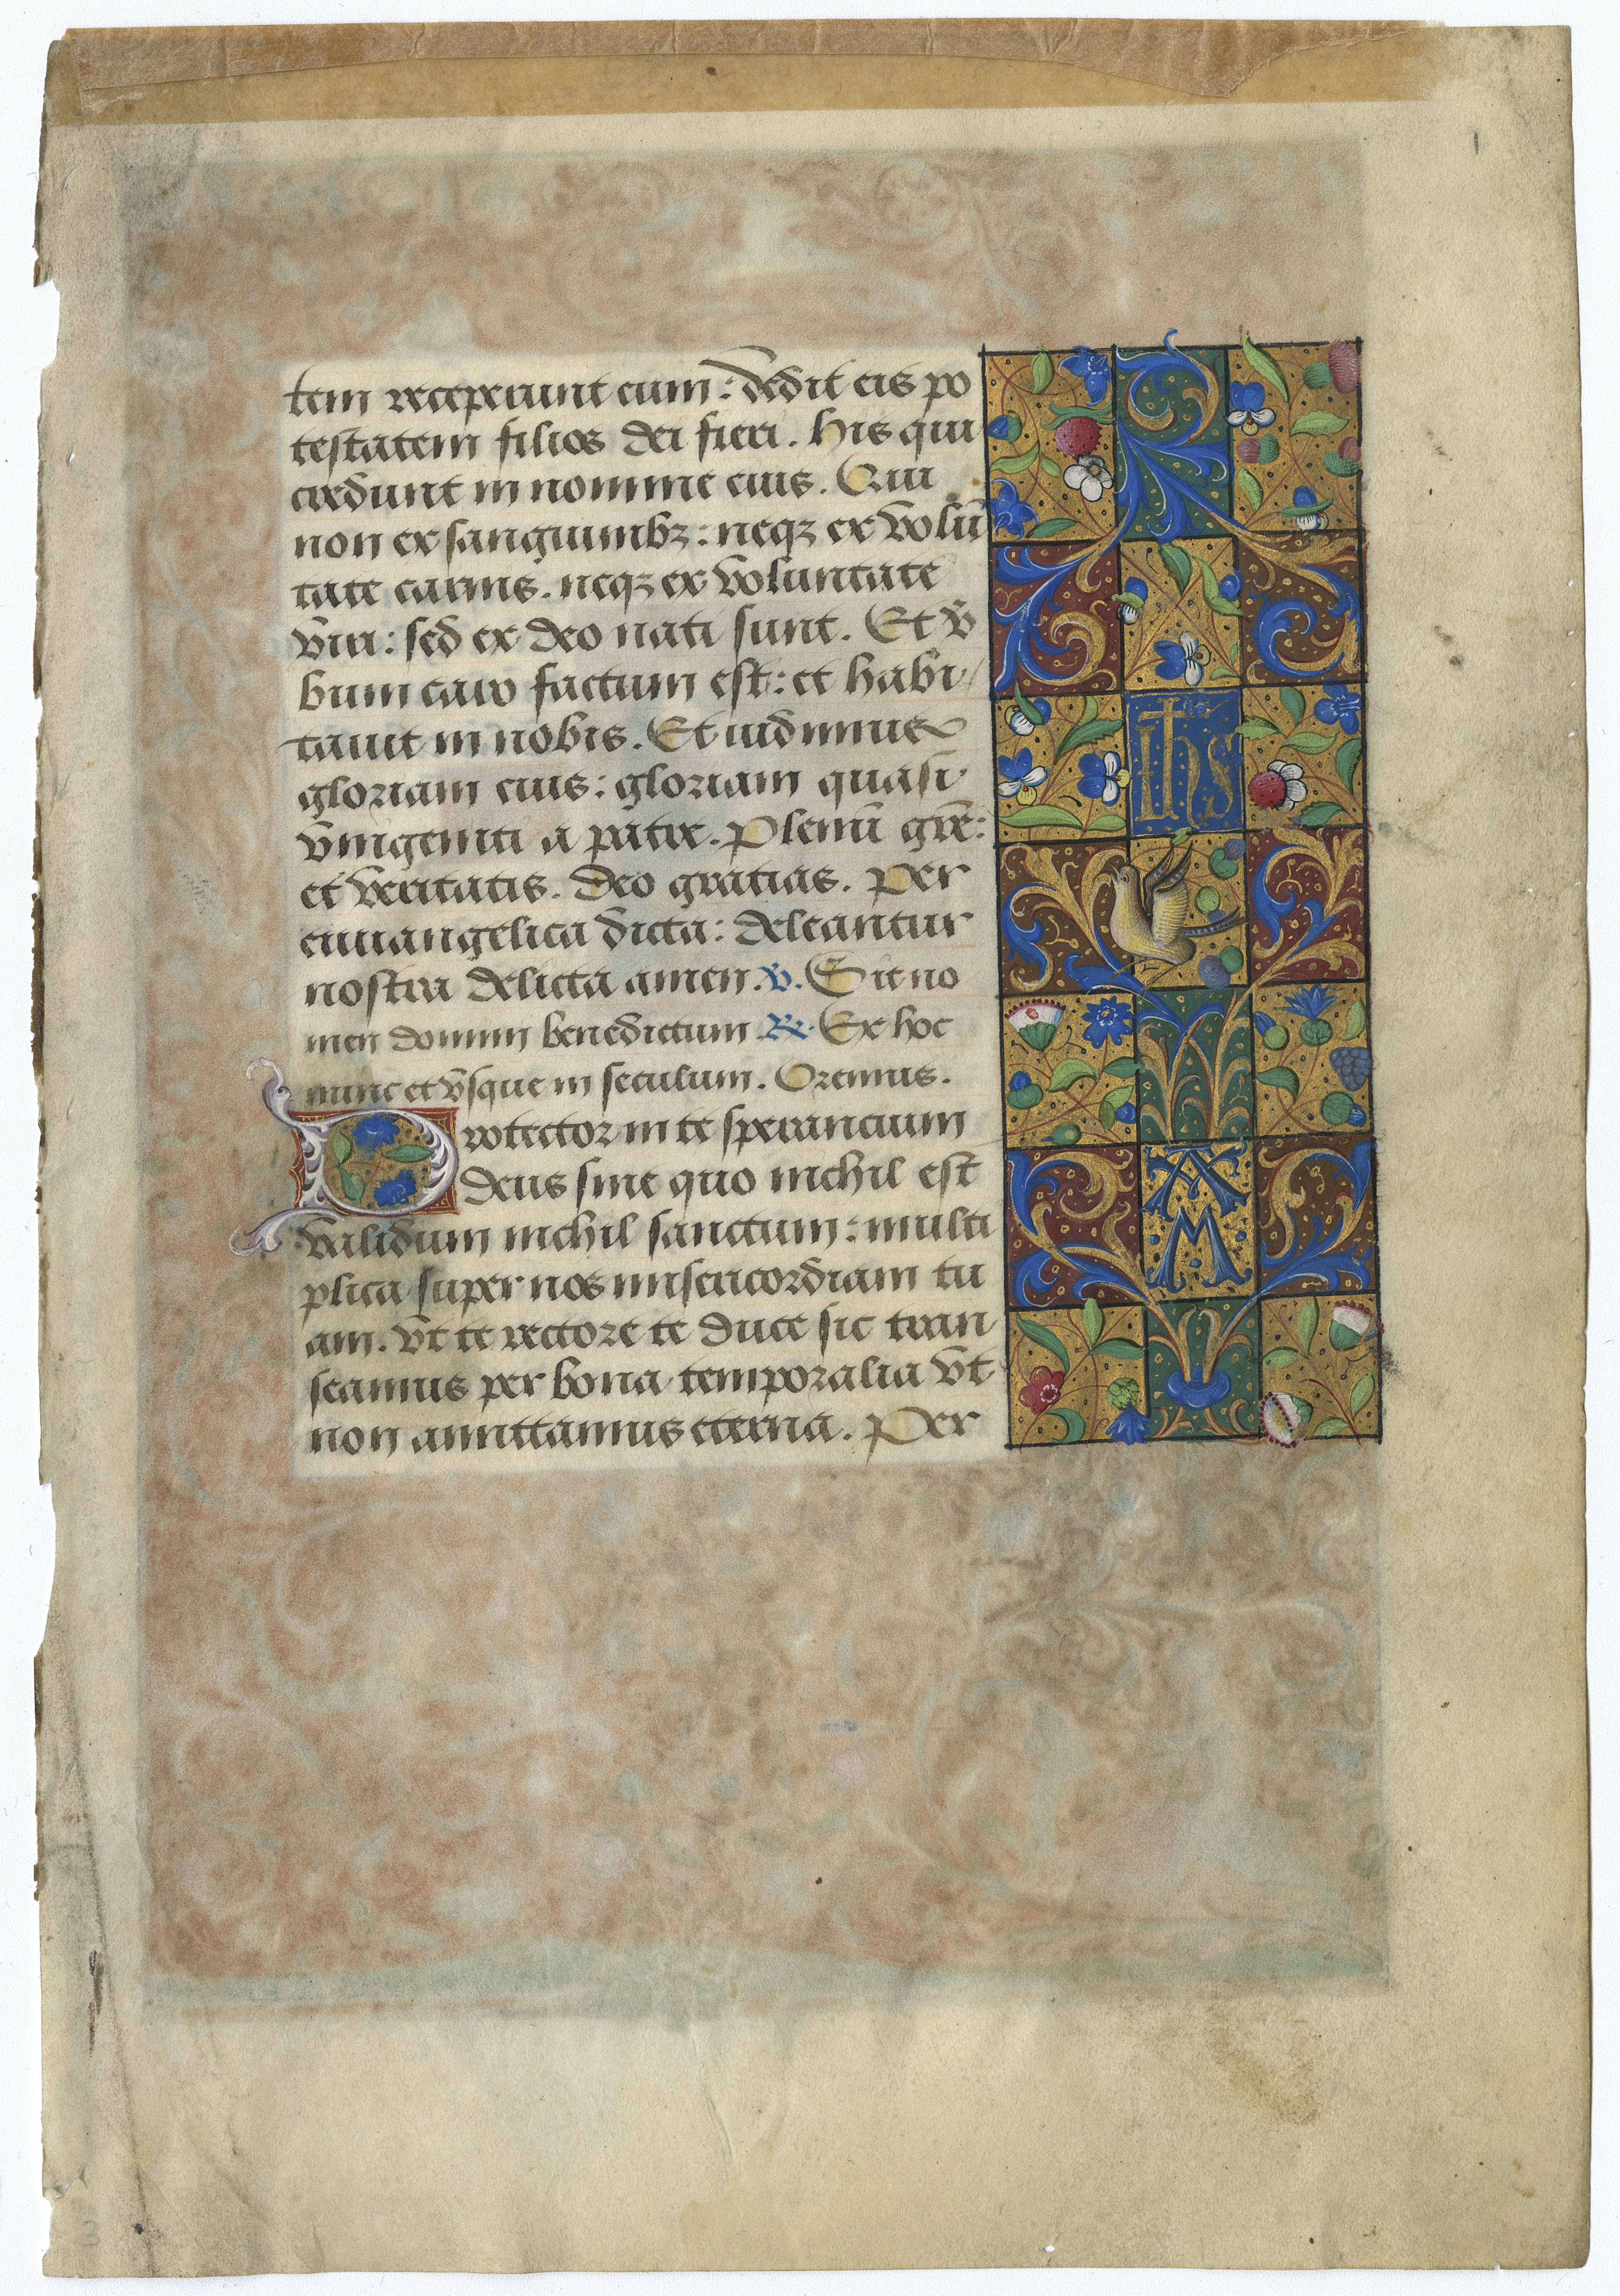 tem receperunt eum: dedit eis po
testatem filios dei fieri. His qui
credunt in nomine eius. Qui
non ex sanguinibꝫ: neqꝫ ex volū
tate carnis. neqꝫ ex voluntate
viri: sed ex deo nati sunt. Et v̄
bum caro factum est: et habi
tauit in nobis. Et uidimus
gloriam eius: gloriam quasi
vnigeniti a patre. Plenū grē:
et veritatis. Deo gratias. Per
euuangelica dicta: deleantur
nostra delicta amen. ℣. Sit no
men domini benedictum ℟. Ex hoc
nunc et vsque in seculum. Oremus.
Protector in te sperancium
deus sine quo nichil est
validum nichil sanctum: multi
plica super nos misericordiam tu
am. vt te rectore te duce sic tran
seamus per bona temporalia vt
non amittamus eterna. Per
ihs
A
M